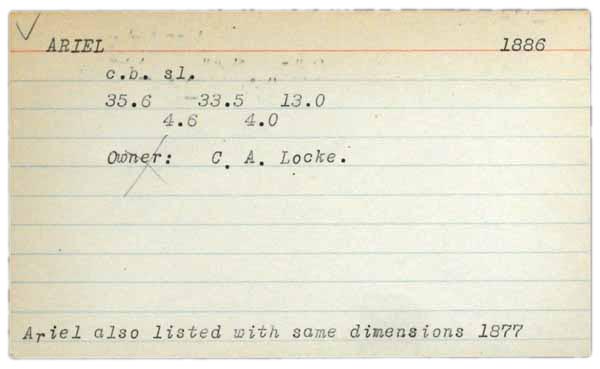 ARIEL 1886
c.b. sl.
35.6 33.5 13.0
4.6 4.0
Owner: C. A. Locke.
Ariel also listed with same dimensions 1877